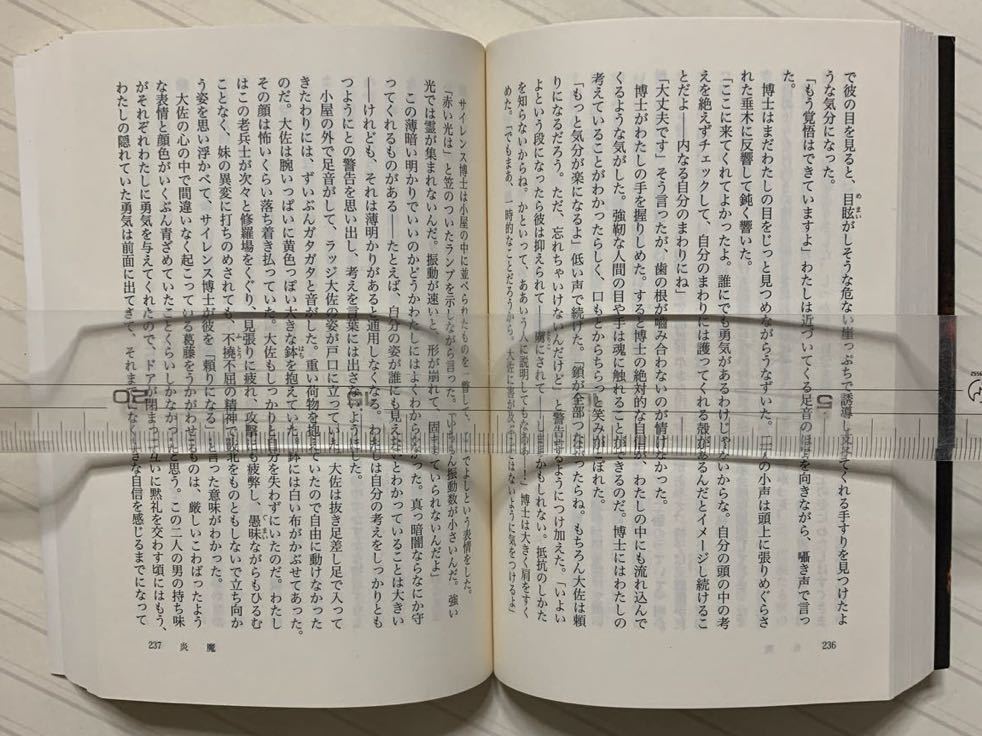 で彼の目を見ると、目眩がしそうな危ない崖っぷちで誘導し支えてくれる手すりを見つけたよ
うな気分になった。
「もう覚悟はできていますよ」わたしは近づいてくる足音のほうを向きながら、囁き声で言っ
た。
博士はまだわたしの目をじっと見つめながらうなずいた。二人の小声は頭上に張りめぐらさ
れた垂木に反響して鈍く響いた。
「ここに来てくれてよかったよ。誰にでも勇気があるわけじゃないからな。自分の頭の中の考
えを絶えずチェックして、自分のまわりには護ってくれる殻があるんだとイメージし続けるこ
とだよ――内なる自分のまわりにね」
「大丈夫です」そう言ったが、歯の根が嚙み合わないのが情けなかった。
博士がわたしの手を握りしめた。すると博士の絶対的な自信が、わたしの中にも流れ込んで
くるような気がした。強靭な人間の目や手は魂に触れることができるのだ。博士にはわたしの
考えていることがわかったらしく、口もとからちらっと笑みがこぼれた。
「もっと気分が楽になるよ」低い声で続けた。「鎖が全部つながったらね。もちろん大佐は頼
りになるだろう。ただ、忘れちゃいけないんだけど」と警告するようにつけ加えた。「いよい
よという段になったら彼は抑えられて――虜にされて――しまうかもしれない。抵抗のしかた
を知らないからね。かといって、ああいう人に説明してもなあ……」博士は大きく肩をすく
めた。「でもまあ、一時的なことだろうから。大佐に害が及ぶことはないように気をつけるよ」
236
サイレンス博士は小屋の中に並べられたものを一瞥して、これでよしという表情をした。
「赤い光は」と笠のついたランプを示しながら言った。「いちばん振動数が小さいんだ。強い
光では霊が集まれないんだ。振動が速いと、形が崩れて、固まっていられないんだよ」
この薄暗い明かりでいいのかどうかわたしにはよくわからなかった。真っ暗闇ならなにか守
ってくれるものがある――たとえば、自分の姿が誰にも見えないとわかっていることは大きい
――けれども、それは薄明かりがあると通用しなくなる。わたしは自分の考えをしっかりも
つようにとの警告を思い出し、考えを言葉には出さないようにした。
小屋の外で足音がして、ラッジ大佐の姿が戸口に立っていた。大佐は抜き足差し足で入って
きたわりには、ずいぶんガタガタと音がした。重い荷物を抱えていたので自由に動けなかった
のだ。大佐は腕いっぱいに黄色っぽい大きな鉢を抱えていた。鉢には白い布がかぶせてあった。
その顔は怖いくらい落ち着き払っていた。大佐もしっかりと自分を失わずにいたのだ。わたし
はこの老兵士が次々と修羅場をくぐり、見張りに疲れ、攻撃にも疲弊し、愚昧ながらもひるむ
ことなく、妹の異変に打ちのめされても、不撓不屈の精神で敗北をものともしないで立ち向か
う姿を思い浮かべて、サイレンス博士が彼を「頼りになる」と言った意味がわかった。
大佐の心の中で間違いなく起こっている葛藤をうかがわせるものは、厳しいこわばったよう
な表情と顔色がいくぶん青ざめていたことくらいしかなかったと思う。この二人の男の持ち味
がそれぞれわたしに勇気を与えてくれたので、ドアが閉まって互いに黙礼を交わす頃にはもう、
わたしの隠れていた勇気は前面に出てきて、それまでになく大きな自信を感じるまでになって
237 炎 魔